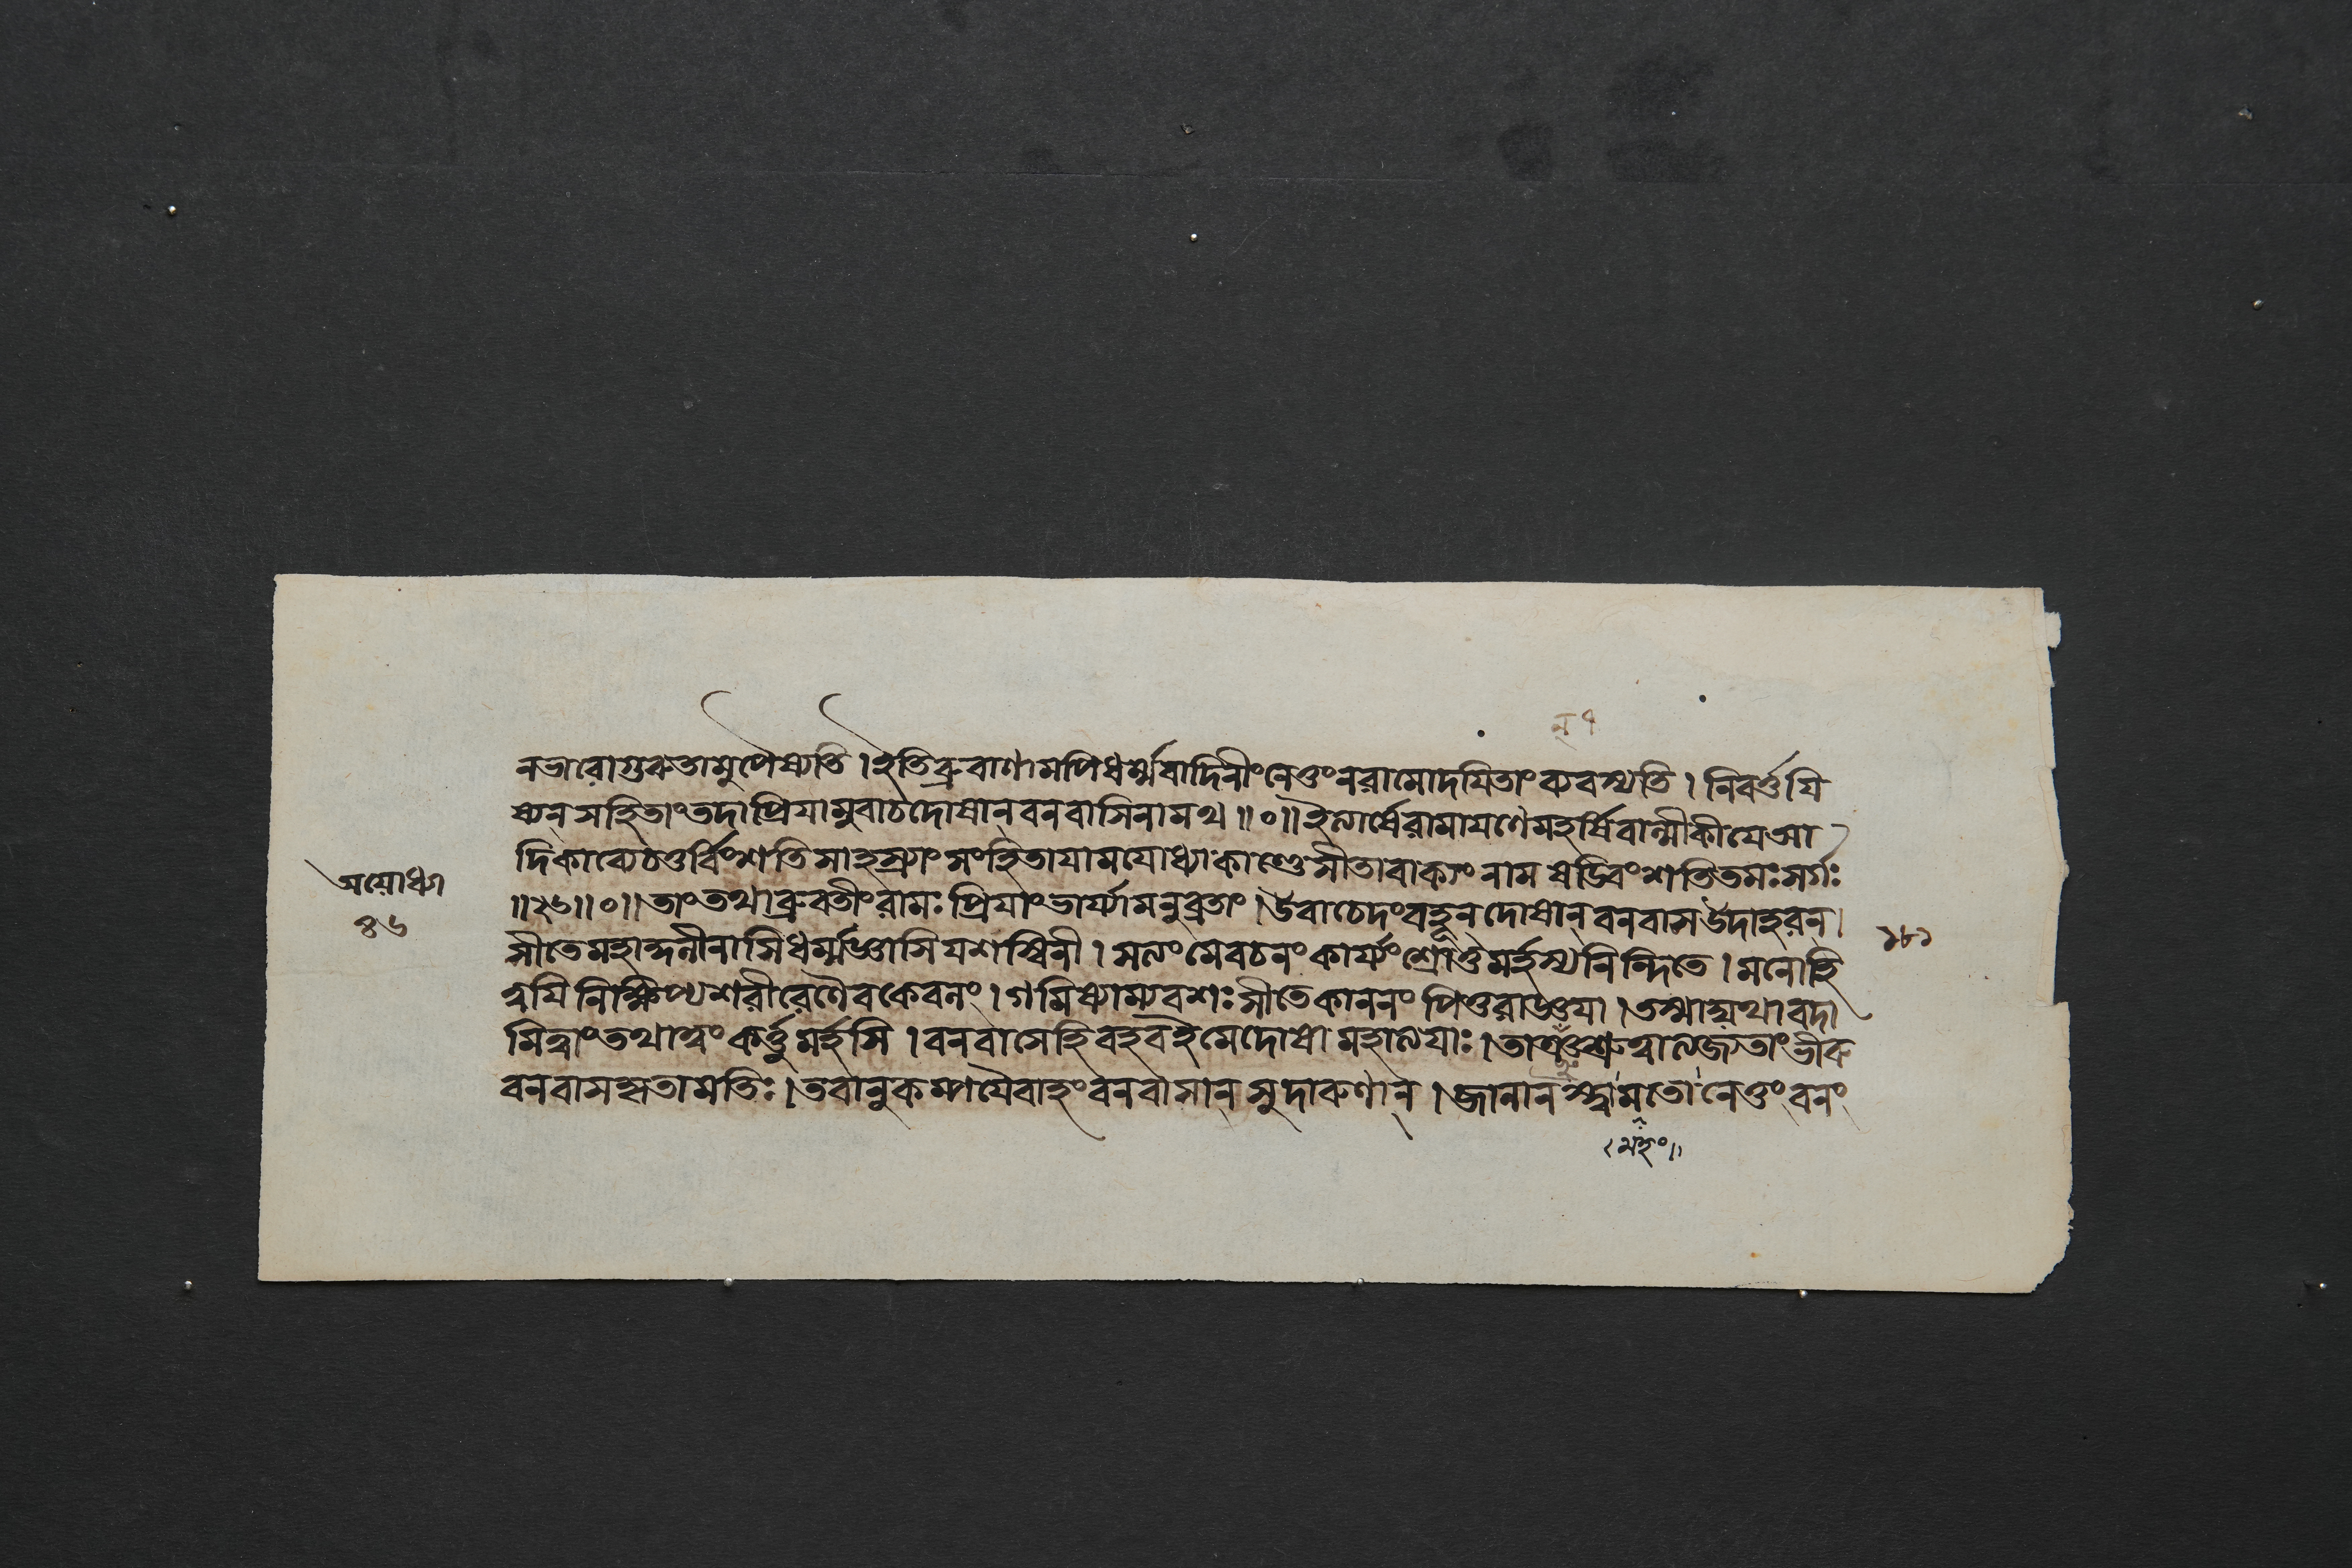 ন ৭
নভারোগুরুতামুপৈষ্যতি । ইতিব্রুবাণামপিধর্ম্মবাদিনীংনেতুংনরামোদয়িতাংব্যবস্যতি । নিবর্ত্তয়ি
ষ্যেনসহিতাংতদাপ্রিয়ামুবাচদোষান্বনবাসিনামথ ॥০॥ ইত্যার্ষেরামায়ণেমহর্ষিবাল্মীকীয়েআ
দিকাব্যেচতুর্বিংশতিসাহস্র্যাং সংহিতায়ামযোধ্যাকাণ্ডেসীতাবাক্যং নাম ষড্বিংশতিতমঃসর্গঃ
॥২৬॥০॥ তাংতথাব্রুবতীংরামঃ প্রিয়াংভার্য্যামনুব্রতাং । উবাচেদংবহূন্দোষান্বনবাসউদাহরন্ ।
সীতেমহাকুলীনাসিধর্ম্মজ্ঞাসিযশস্বিনী । মলংমেবচনংকার্য্যংশ্রোতুমর্হস্যনিন্দিতে । মনোহি
ত্বয়িনিক্ষিপ্যশরীরেণৈবকেবলং । গমিষ্যাম্যবশঃসীতেকাননং পিতুরাজ্ঞয়া । তস্মাদ্যথাবদা
মিত্বাংতথাত্বং কর্ত্তুমর্হসি । বনবাসেহিবহবইমেদোষা মহালয়াঃ । তাঞ্চশ্রুত্বাত্যজ্যতাংভীরু
বনবাসকৃতামতিঃ । তবানুকম্পয়ৈবাহং বনবাসান্ সুদারুণান্ । জানানস্ত্বামতো নেতুংবনং
মহং
অযোধ্যা
৪৬
১৮১